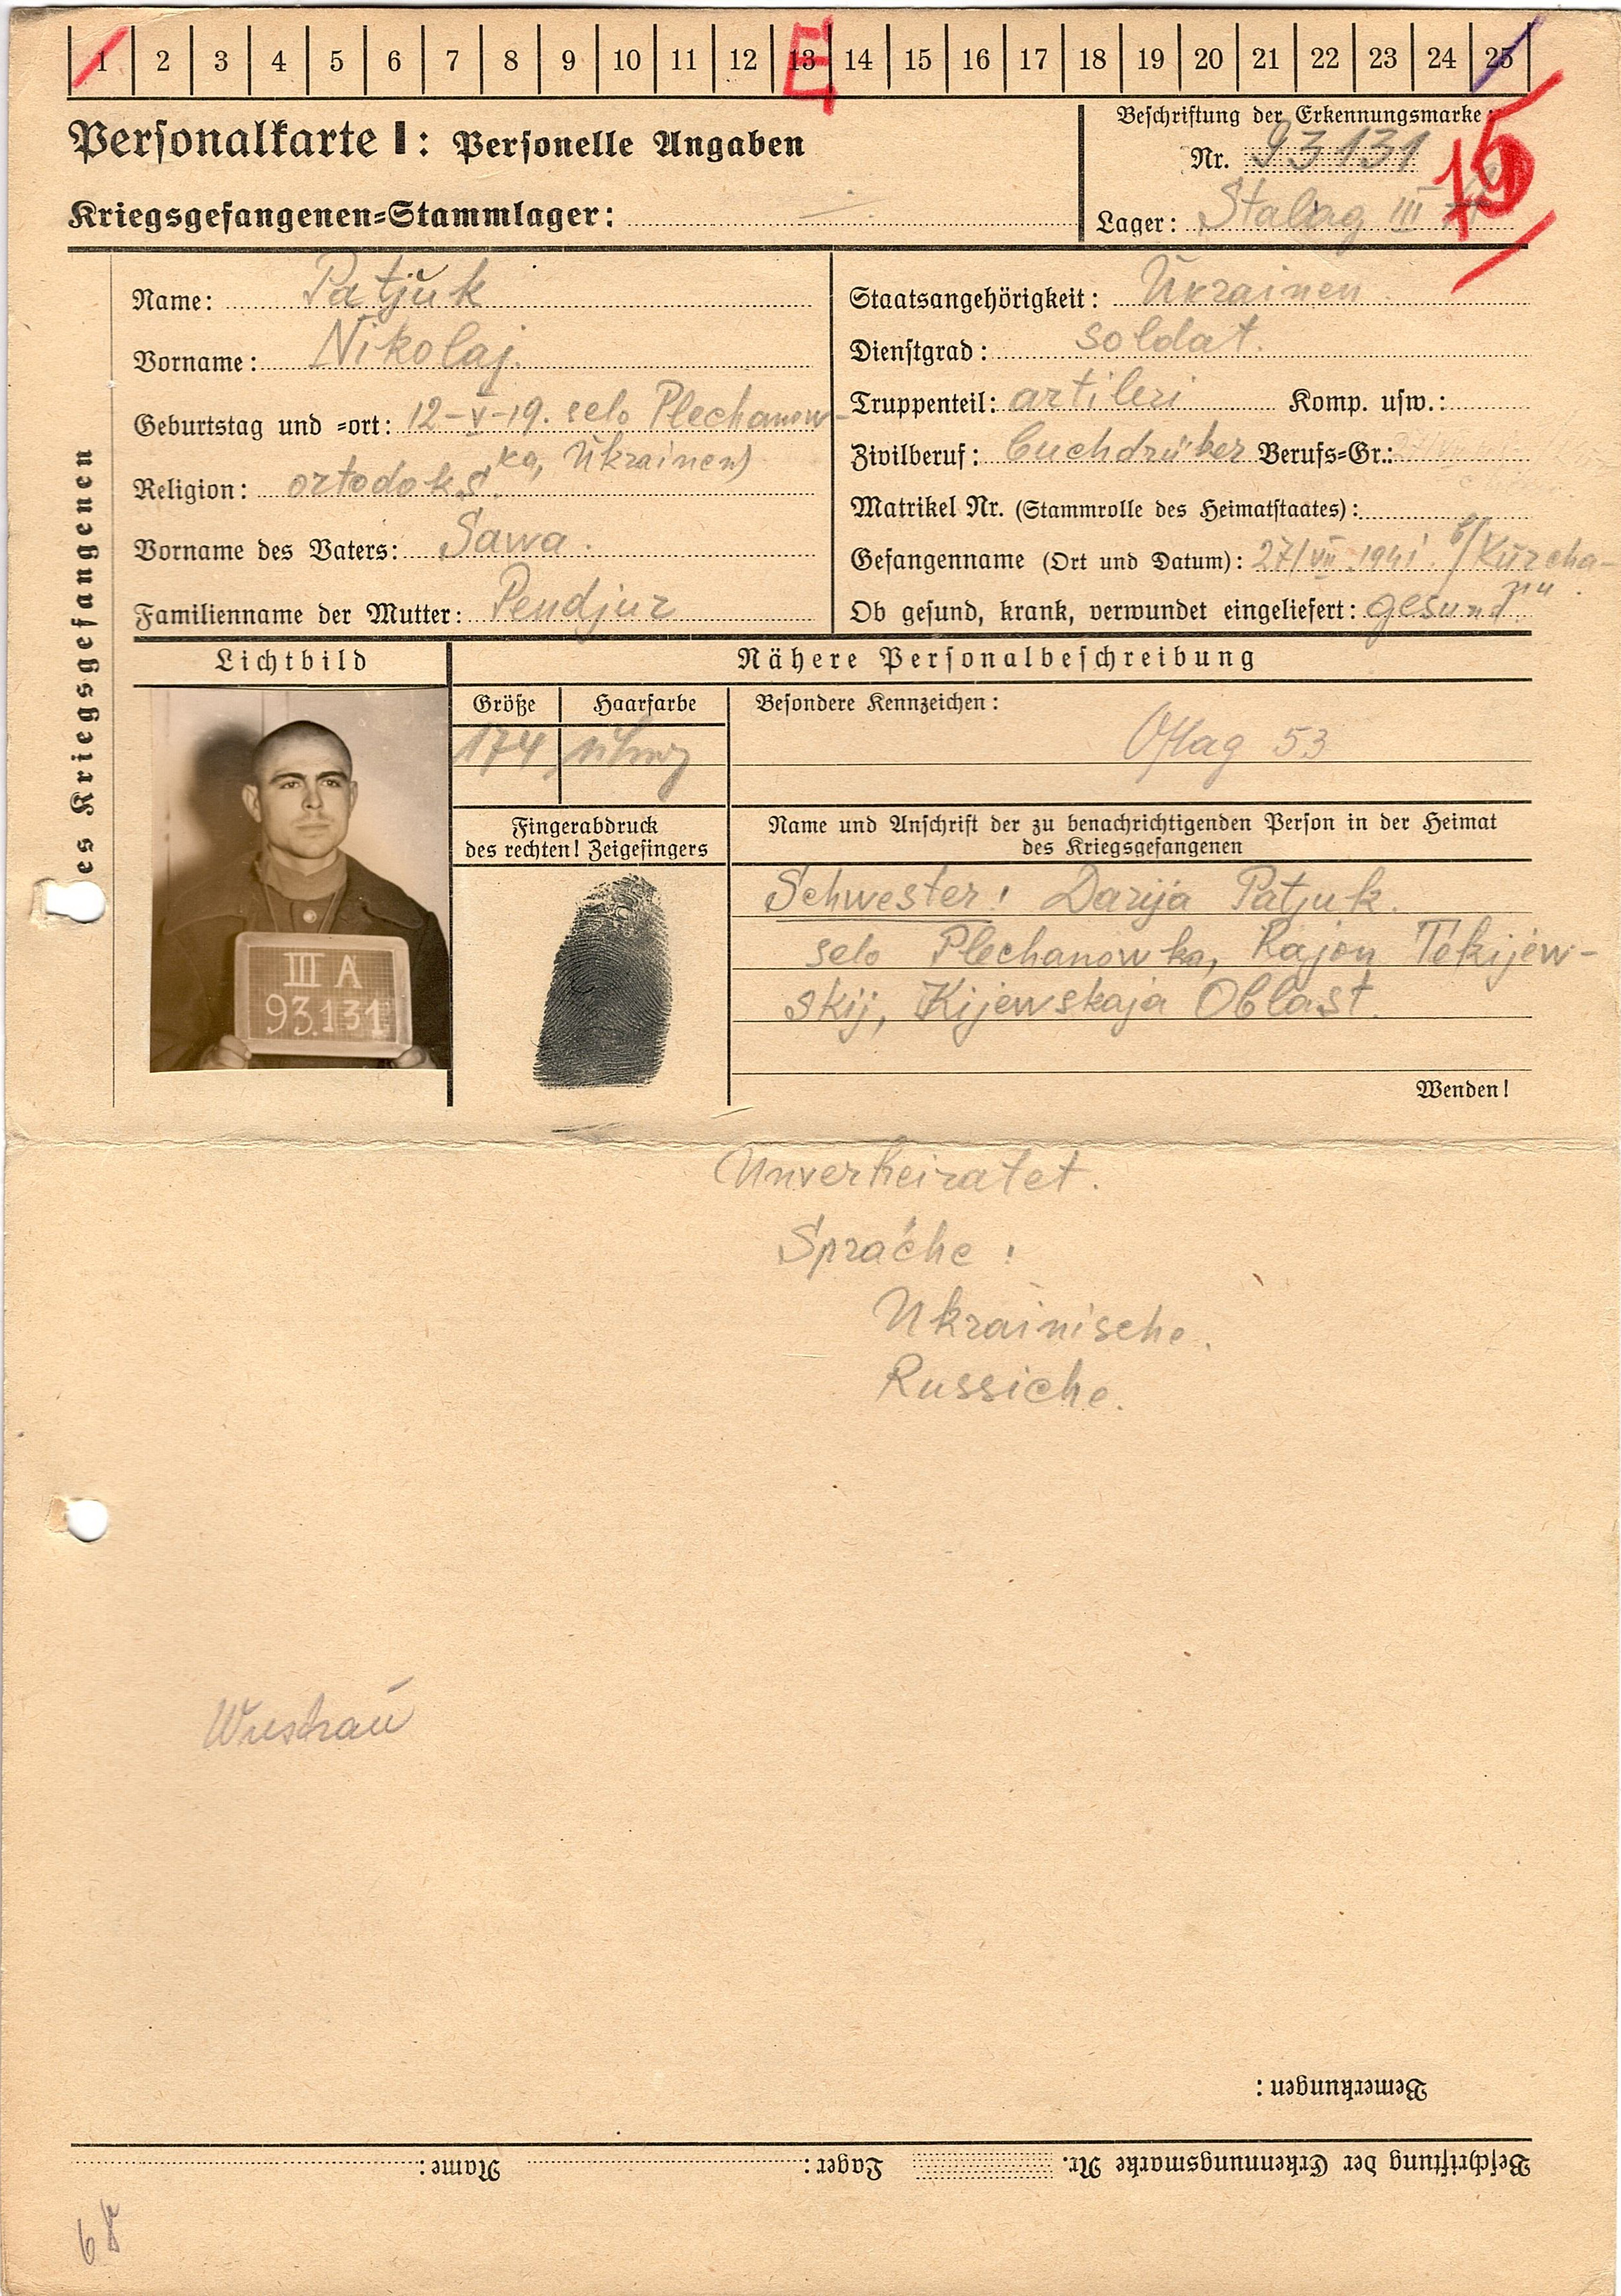 1 2 3 4 5 6 7 8 9 10 11 12 13 14 15 16 17 18 19 20 21 22 23 24 25
Personalkarte I: Personelle Angaben
Kriegsgefangenen=Stammlager:
Beschriftung der Erkennungsmarke:
Nr. 93131
15
Lager: Stalag III A
es Kriegsgefangenen
Name: Patjuk
Vorname: Nikolaj.
Geburtstag und =ort: 12-V-19. selo Plechanow-
ka, Ukrainen)
Religion: ortodoks.
Vorname des Vaters: Sawa.
Familienname der Mutter: Pendjur
Staatsangehörigkeit: Ukrainen.
Dienstgrad: soldat.
Truppenteil: artileri Komp. usw.:
Zivilberuf: buchdrüker Berufs=Gr.:
Matrikel Nr. (Stammrolle des Heimatstaates):
Gefangenname (Ort und Datum): 27/VII.1941.
Ob gesund, krank, verwundet eingeliefert: gesund.
Lichtbild
III A
93.131
Nähere Personalbeschreibung
Größe Haarfarbe Besondere Kennzeichen:
174
Oflag 53
Fingerabdruck
des rechten! Zeigefingers
Name und Anschrift der zu benachrichtigenden Person in der Heimat
des Kriegsgefangenen
Schwester: Darija Patjuk.
selo Plechanowka, Rajon Tekijew-
skij, Kijewskaja Oblast.
Wenden!
Unverheiratet.
Sprache:
Ukrainische.
Russiche.
Wustrau
Bemerkungen:
Beschriftung der Erkennungsmarke Nr. Lager: Name: